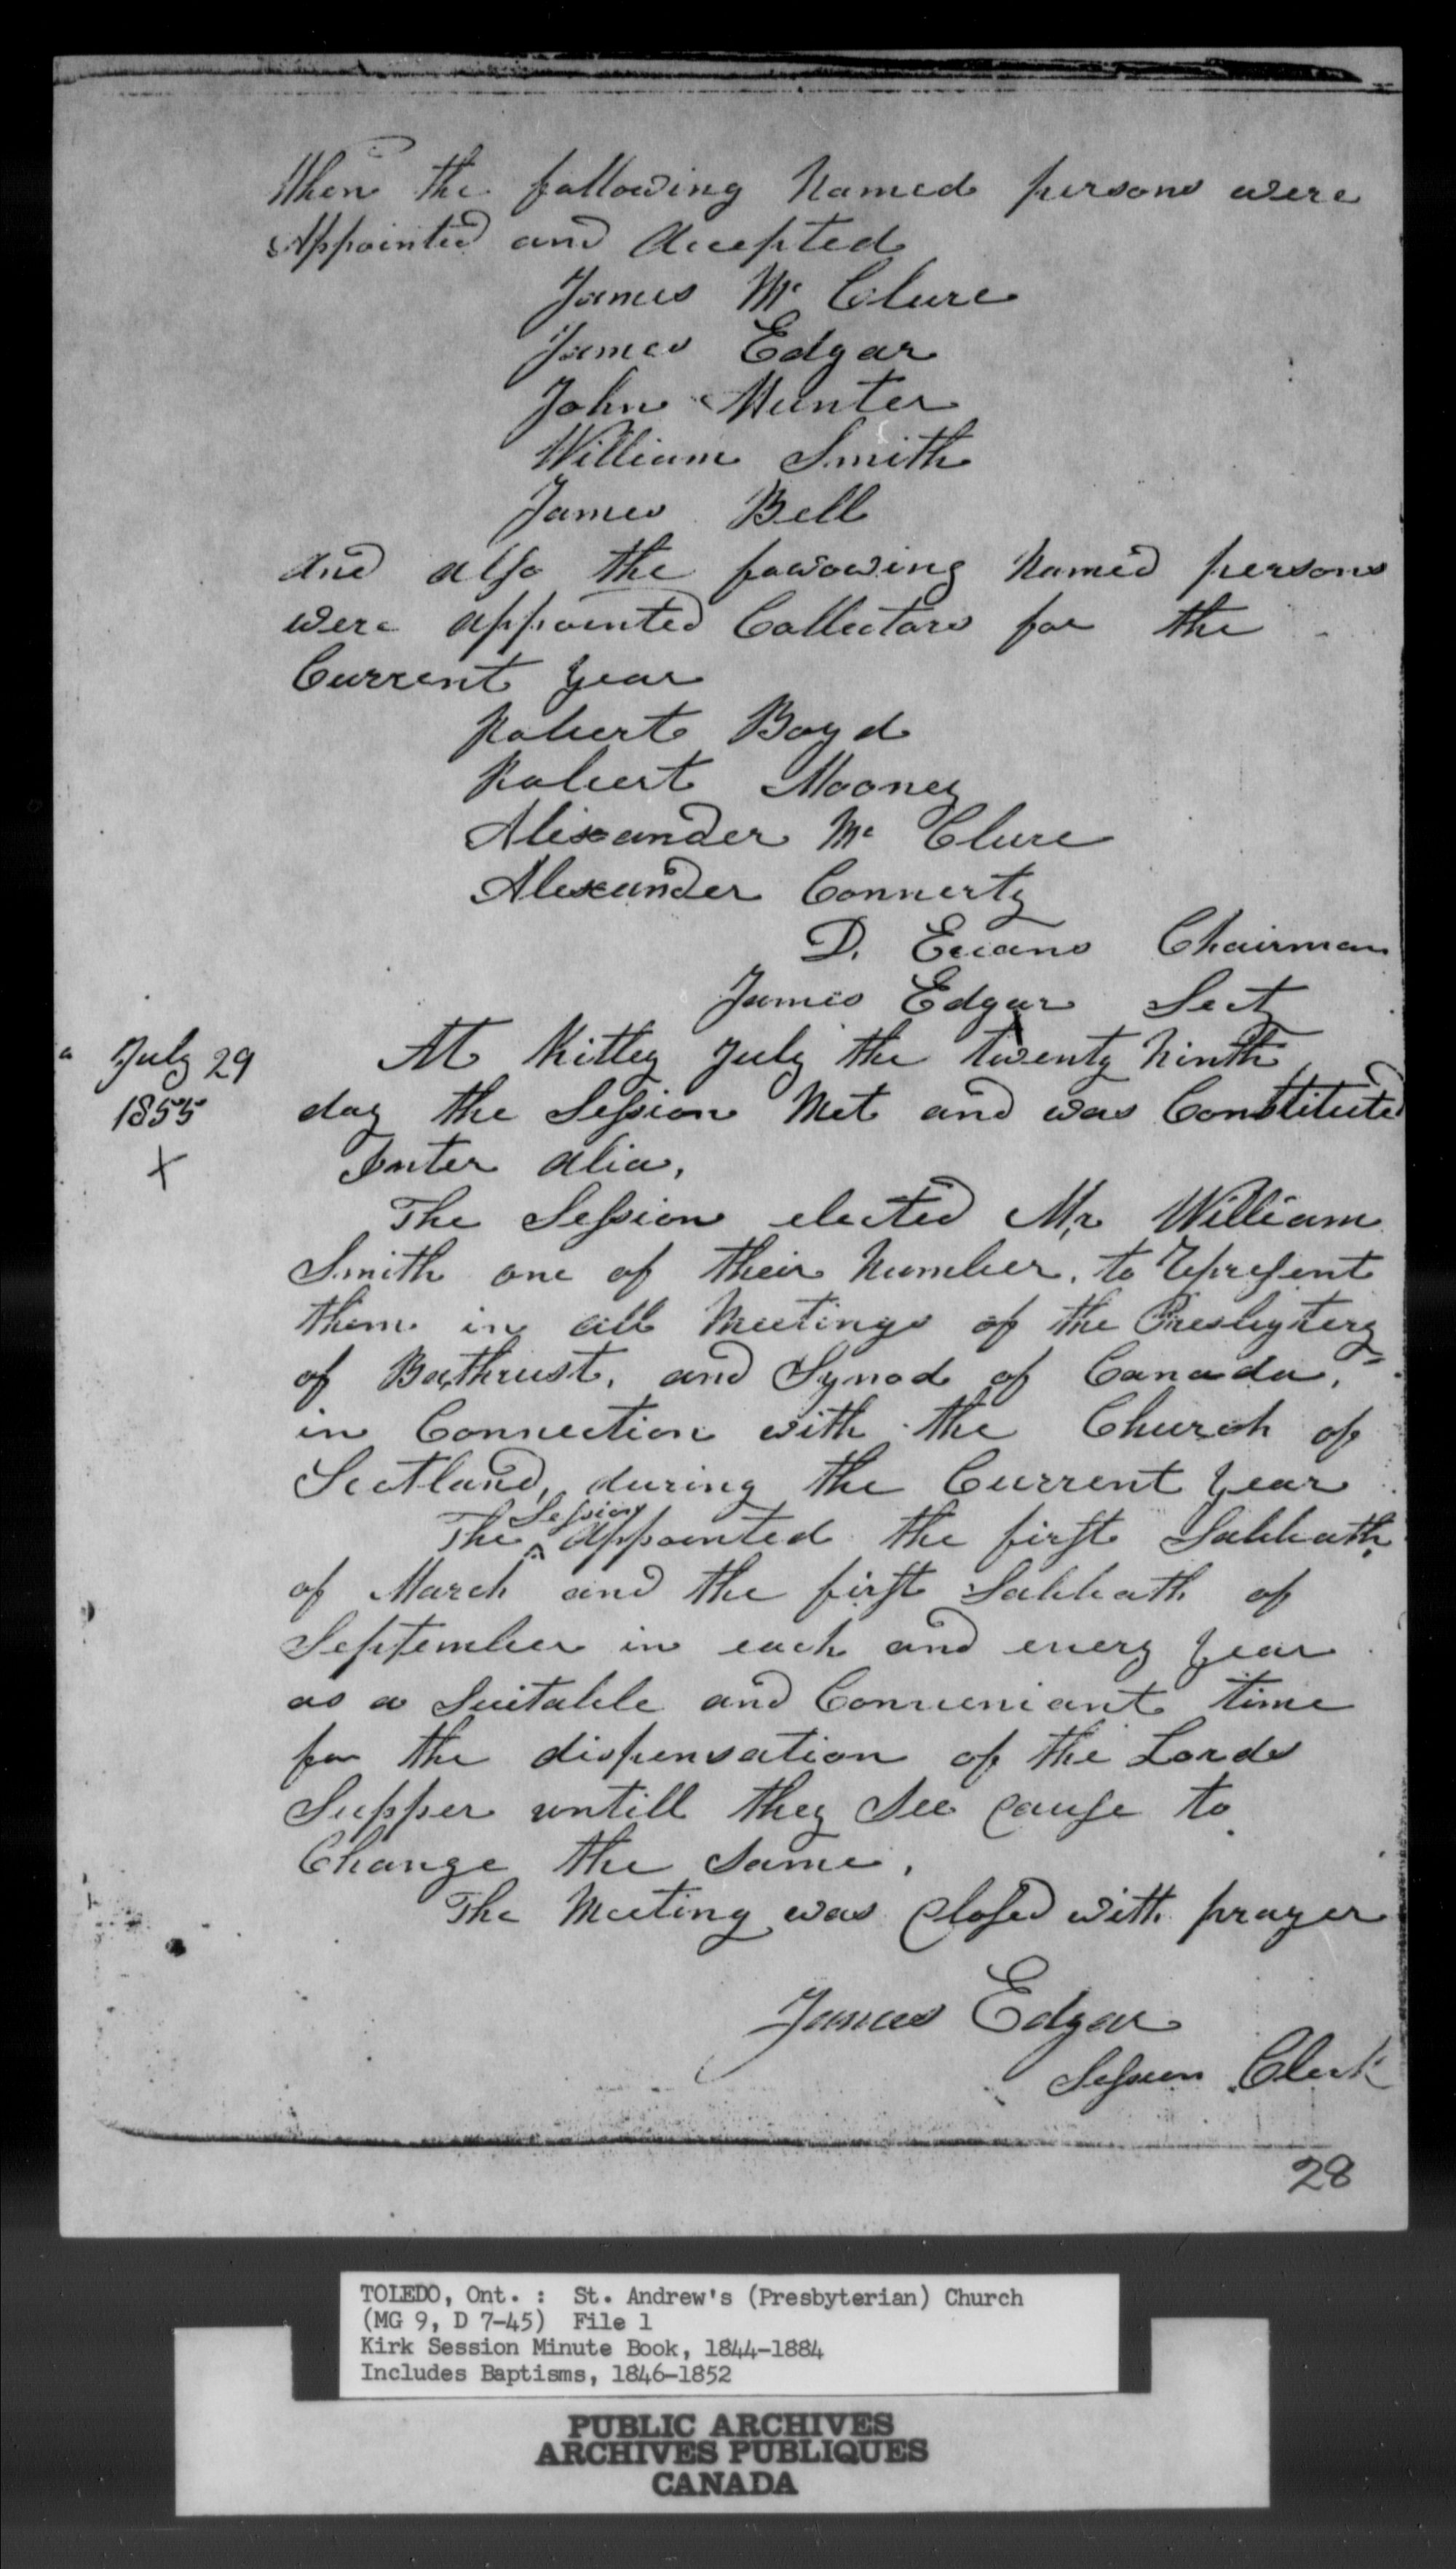 When the following Named persons were
Appointed and Accepted
James Mc Clure
James Edgar
John Hunter
William Smith
James Bell
And also the following Named persons
were appointed Collectors for the
Current year
Robert Boyd
Robert Mooney
Alexander Mc Clure
Alexander Connerty
D. Evans Chairman
James Edgar Sect
July 29
1855
X
At Kitley July the twenty Ninth
day the Session Met and was Constituted
Inter alia,
The Session elected Mr William
Smith one of their Number, to represent
them in all Meetings of the Presbytery
of Bathrust, and Synod of Canada,
in Connection with the Church of
Scotland, during the Current year
The Session appointed the first Sabbath
of March and the first Sabbath of
September in each and every year
as a Suitable and Conveniant time
for the dispensation of the Lords
Supper untill they See Cause to
Change the Same,
The Meeting was Closed with prayer
James Edgar
Session Clerk
28
TOLEDO, Ont. : St. Andrew's (Presbyterian) Church
(MG 9, D 7-45) File 1
Kirk Session Minute Book, 1844-1884
Includes Baptisms, 1846-1852
PUBLIC ARCHIVES
ARCHIVES PUBLIQUES
CANADA